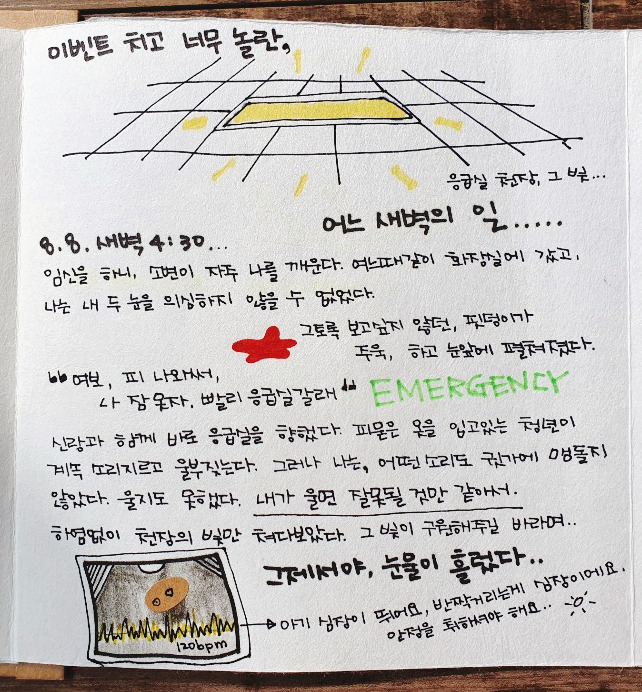 이벤트 치고 너무 놀란,
응급실 천장, 그 빛...
어느 새벽의 일.....
8.8. 새벽 4:30...
임신을 하니, 소변이 자주 나를 깨운다. 여느때같이 화장실에 갔고,
나는 내 두 눈을 의심하지 않을 수 없었다.
그토록 보고싶지 않던, 핏덩이가
주욱, 하고 눈앞에 펼쳐졌다.
❝여보, 피 나와써,
나 잠옷자. 빨리 응급실갈래❞
EMERGENCY
신랑과 함께 바로 응급실을 향했다. 피묻은 옷을 입고있는 청년이
계쪽 소리지르고 울부짖는다. 그러나 나는, 어떤소리도 귓가에 맴돌지
않았다. 울지도 못했다. 내가 울면 잘못될 것만 같아서.
하염없이 천장의 빛만 쳐다보았다. 그 빛이 구원해주길 바라며..
그제서야, 눈물이 흘렀다..
120bpm
아기 심장이 뛰어요, 반짝거리는게 심장이에요.
안정을 취해셔야 해요..